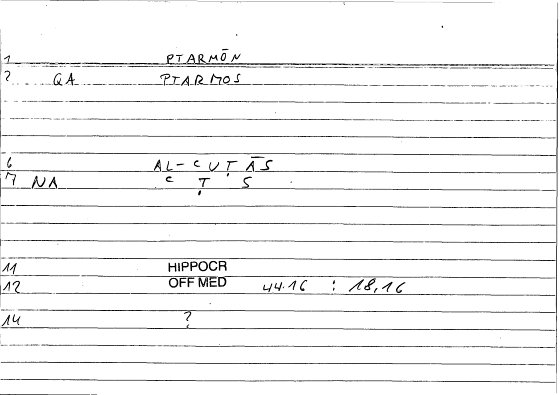 1 PTARMŌN
2 QA PTARMOS
6 AL-ʿUṬĀS
7 NA ʿ Ṭ S
11 HIPPOCR
12 OFF MED 44.16 : 18,16
14 ?